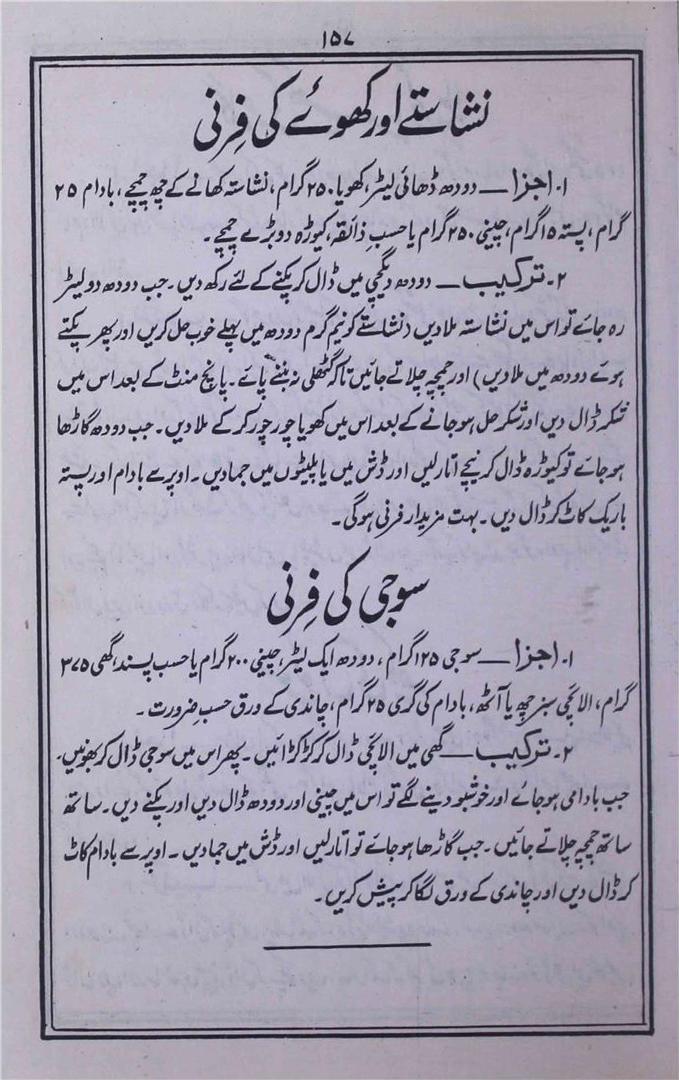 ۱۵۷
نشاستے اور کھوئے کی فِرنی
۱۔ اجزا — دودھ ڈھائی لیٹر، کھویا ۲۵۰ گرام، نشاستہ کھانے کے چھ چمچے، بادام ۲۵
گرام، پستہ ۱۵ گرام، چینی ۲۵۰ گرام یا حسبِ ذائقہ، کیوڑہ دو بڑے چمچے۔
۲۔ ترکیب — دودھ دیگچی میں ڈال کر پکنے کے لئے رکھ دیں۔ جب دودھ دو لیٹر
رہ جائے تو اس میں نشاستہ ملا دیں (نشاستے کو نیم گرم دودھ میں پہلے خوب حل کریں اور پھر پکتے
ہوئے دودھ میں ملا دیں) اور چمچہ چلاتے جائیں تاکہ گٹھلی نہ بننے پائے۔ پانچ منٹ کے بعد اس میں
شکر ڈال دیں اور شکر حل ہو جانے کے بعد اس میں کھویا چور چور کر کے ملا دیں۔ جب دودھ گاڑھا
ہو جائے تو کیوڑہ ڈال کر نیچے اتار لیں اور ڈش میں یا پلیٹوں میں جما دیں۔ اوپر سے بادام اور پستہ
باریک کاٹ کر ڈال دیں۔ بہت مزیدار فرنی ہوگی۔
سوجی کی فِرنی
۱۔ اجزا — سوجی ۱۲۵ گرام، دودھ ایک لیٹر، چینی ۲۰۰ گرام یا حسب پسند، گھی ۳۷۵
گرام، الائچی سبز چھ یا آٹھ، بادام کی گری ۲۵ گرام، چاندی کے ورق حسب ضرورت۔
۲۔ ترکیب — گھی میں الائچی ڈال کر کڑکڑائیں۔ پھر اس میں سوجی ڈال کر بھونیں۔
جب بادامی ہو جائے اور خوشبو دینے لگے تو اس میں چینی اور دودھ ڈال دیں اور پکنے دیں۔ ساتھ
ساتھ چمچہ چلاتے جائیں۔ جب گاڑھا ہو جائے تو اتار لیں اور ڈش میں جما دیں۔ اوپر سے بادام کاٹ
کر ڈال دیں اور چاندی کے ورق لگا کر پیش کریں۔